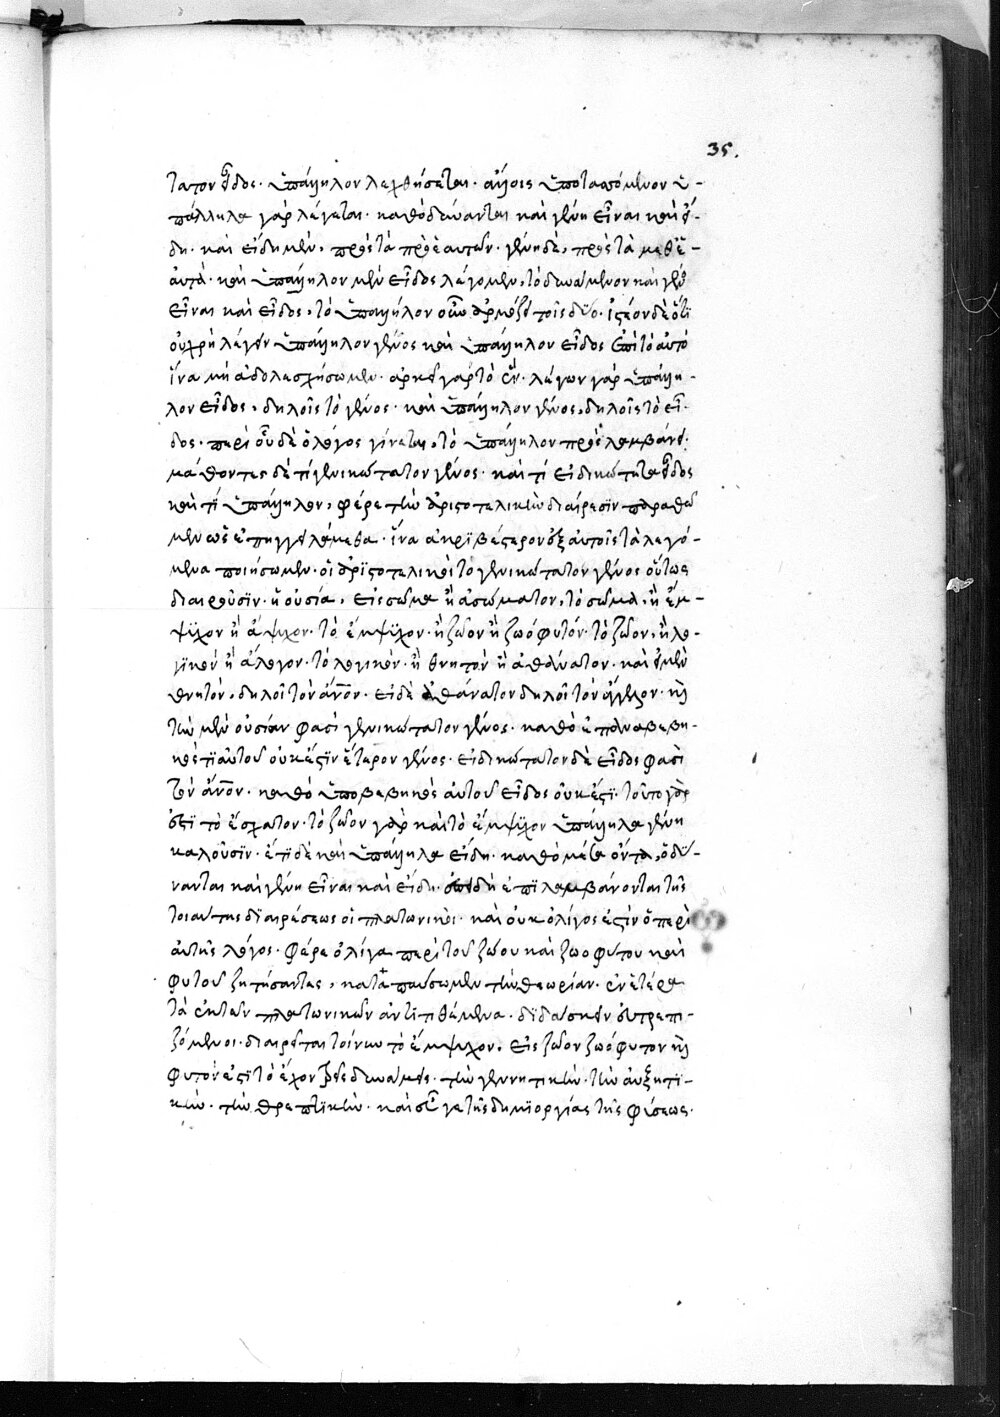 35.
τατον εἶδος. ὑπάλληλον λεχθήσεται. ἀλλήλοις ὑποτασσόμενον ὑ-
πάλληλα γὰρ λέγεται. καθὸ δύνανται καὶ γένη εἶναι καὶ εἴ-
δη. καὶ εἴδη μὲν, πρὸς τὰ πρὸ ἑαυτῶν. γένη δὲ, πρὸς τὰ μεθ' ἑ-
αυτά. καὶ ὑπάλληλον μὲν εἶδος λέγομεν, τὸ δυνάμενον καὶ γένος
εἶναι καὶ εἶδος, τὸ ὑπάλληλον οὖν ἁρμόζει τοῖς δύο. ἰστέον δὲ ὅτι
οὐ χρὴ λέγειν ὑπάλληλον γένος καὶ ὑπάλληλον εἶδος ἐπὶ τὸ αὐτὸ
ἵνα μὴ ἀδολεσχήσωμεν. ἀρκεῖ γὰρ τὸ ἕν. λέγων γὰρ ὑπάλλη-
λον εἶδος, δηλοῖς τὸ γένος. καὶ ὑπάλληλον γένος, δηλοῖς τὸ εἶ-
δος. περὶ οὗ δὲ ὁ λόγος γίνεται, τὸ ὑπάλληλον προσλαμβάνει.
μαθόντες δὲ τί γενικώτατον γένος. καὶ τί εἰδικώτατα εἶδος
καὶ τί ὑπάλληλον, φέρε τὴν ἀριστοτελικὴν διαίρεσιν παραθῶ
μεν ὡς ἐπηγγειλάμεθα. ἵνα ἀκριβέστερον ἐξ αὐτοῖς τὰ λεγό-
μενα ποιήσωμεν. οἱ ἀριστοτελικοὶ τὸ γενικώτατον γένος οὕτως
διαιροῦσιν. ἡ οὐσία, εἰς σῶμα ἢ ἀσώματον, τὸ σῶμα, ἢ ἔμ-
ψυχον ἢ ἄψυχον. τὸ ἔμψυχον. ἢ ζῶον ἢ ζωόφυτον. τὸ ζῶον, ἢ λο-
γικὸν ἢ ἄλογον. τὸ λογικὸν. ἢ θνητὸν ἢ ἀθάνατον. καὶ εἰ μὲν
θνητὸν, δηλοῖ τὸν ἄνον. εἰ δὲ ἀθάνατον δηλοῖ τὸν ἄγγελον. καὶ
τὴν μὲν οὐσίαν φασὶ γενικώτατον γένος. καθὸ ἐπαναβεβη-
κός τι αὐτοῦ οὐκ ἔστιν ἕτερον γένος. εἰδικώτατον δὲ εἶδος φασὶ
τὸν ἄνον. καθὸ ὑποβεβηκὸς αὐτοῦ εἶδος οὐκ ἔστι. τοῦτο γάρ
ἐστι τὸ ἔσχατον. τὸ ζῶον γὰρ καὶ τὸ ἔμψυχον ὑπάλληλα γένη
καλοῦσιν. ἔτι δὲ καὶ ὑπάλληλα εἴδη. καθὸ μέσα ὄντα, ὃ δύ-
νανται καὶ γένη εἶναι καὶ εἴδη. ἐπειδὴ ἐπιλαμβάνονται τῆς
τοιαύτης διαιρέσεως οἱ πλατωνικοὶ. καὶ οὐκ ὀλίγος ἐστὶν ὁ περὶ
αὐτῆς λόγος. φέρε ὀλίγα περὶ τοῦ ζώου καὶ ζωοφύτου καὶ
φυτοῦ ζητήσαντες, καταπαύσωμεν τὴν θεωρίαν. ἐν ἑτέρα
τὰ ἐκ τῶν πλατωνικῶν ἀντιτιθέμενα. διδάσκειν εὐτρεπι-
ζόμενοι. διαιρεῖται τοίνυν τὸ ἔμψυχον, εἰς ζῶον ζωόφυτον καὶ
φυτόν ἐστι τὸ ἔχον τρεῖς δυνάμεις. τὴν γεννητικὴν. τὴν αὐξητι-
κὴν. τὴν θρεπτικὴν. καὶ οὔ γε τῆς δημιουργίας τῆς φύσεως.